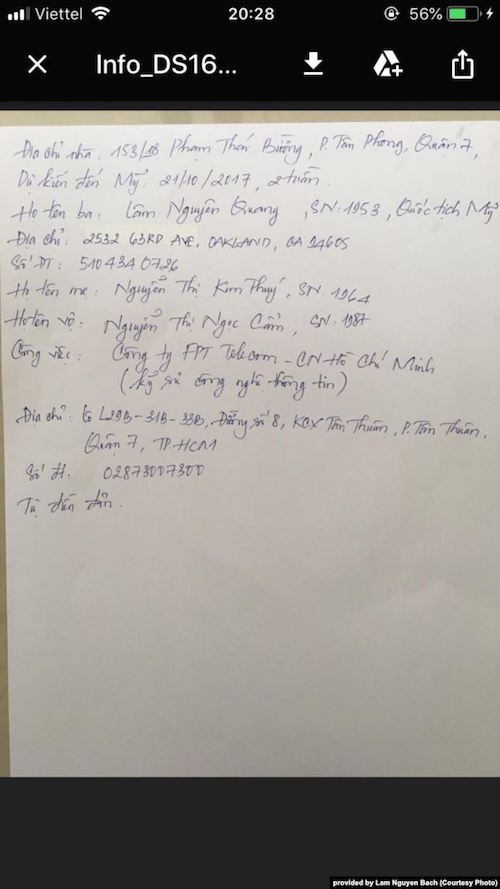 Viettel 20:28 56%
Info_DS16...
Địa chỉ nhà: 153/18 Phạm Thái Bường, P. Tân Phong, Quận 7,
Dự kiến đến Mỹ: 21/10/2017, 2 tuần.
Họ tên ba: Lâm Nguyên Quang, SN: 1953, Quốc tịch Mỹ
Địa chỉ: 2532 63RD AVE, OAKLAND, CA 94605
Số ĐT: 510 434 0726
Họ tên mẹ: Nguyễn Thị Kim Thuý, SN: 1964
Họ tên vợ: Nguyễn Thị Ngọc Cẩm, SN: 1987
Công việc: Công ty FPT Telecom - CN Hồ Chí Minh
(kỹ sư công nghệ thông tin)
Địa chỉ: Lô L29B-31B-33B, Đường số 8, KCX Tân Thuận, P. Tân Thuận,
Quận 7, TP.HCM
Số đt: 02873007300
Tự điền đơn.
provided by Lam Nguyen Bach (Courtesy Photo)